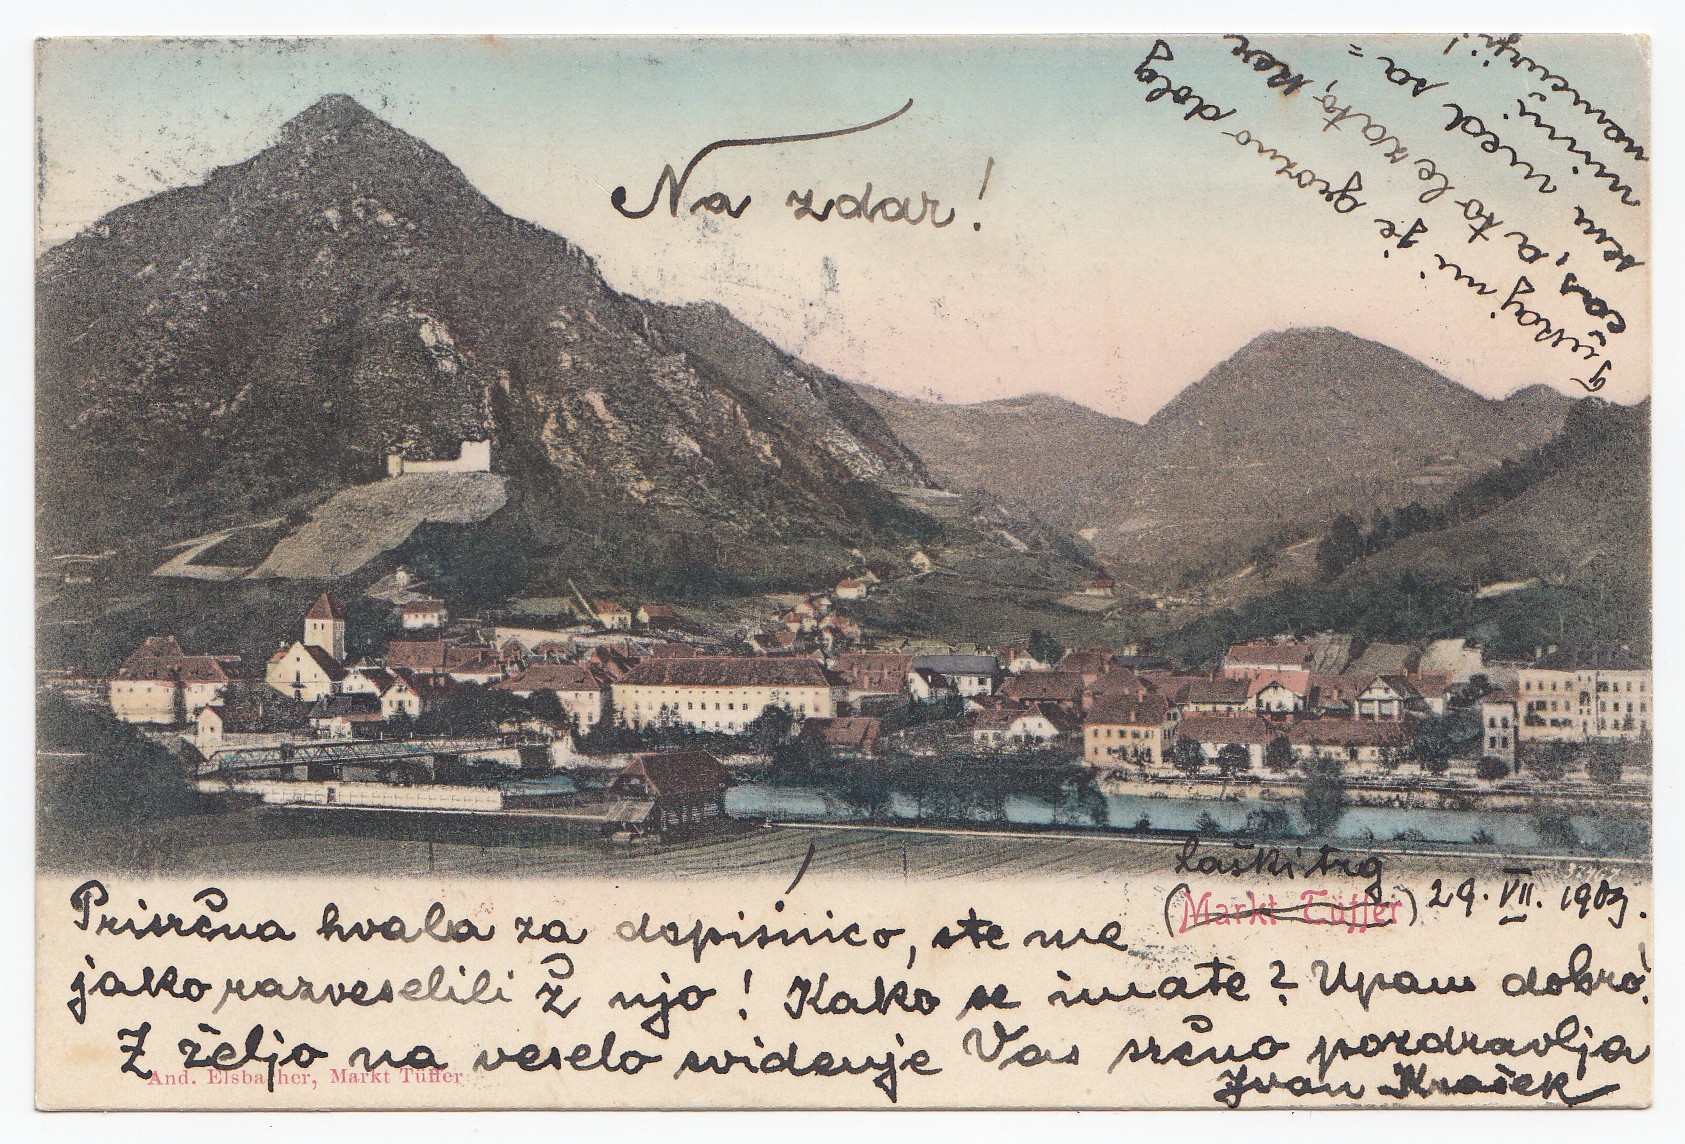 Na zdar!
Tukaj mi je grozno dolg
čas, a to le zato, ker
sem ured sa=
mimi
nemčurji!
Laškitrg
(Markt Tüffer) 29. VII. 1903.
Prisrčna hvala za dopisnico, ste me
jako razveselili ž njo! Kako se imate? Upam dobro!
Z željo na veselo svidenje Vas srčno pozdravlja
Ivan
And. Elsbacher, Markt Tüffer